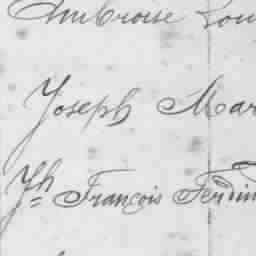 Ambroise Lou
Joseph Mar
Jh François Ferdin